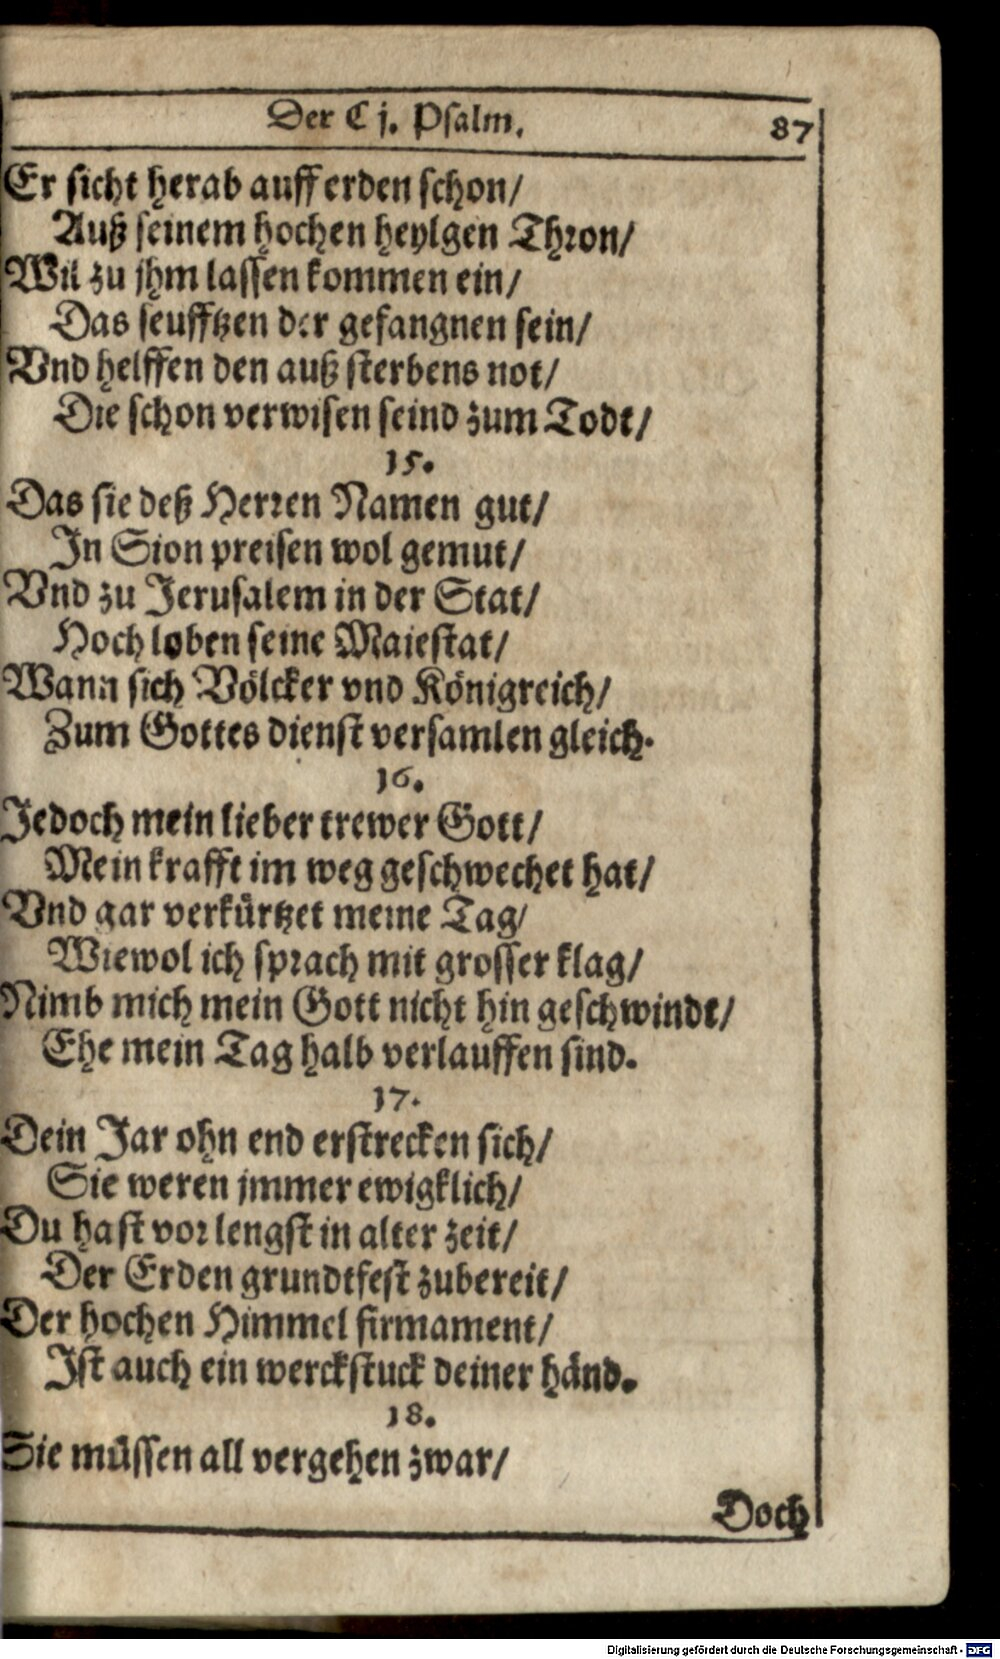 Der C j. Psalm. 87
Er sicht herab auff erden schon/
Auß seinem hochen heylgen Thron/
Wil zu jhm lassen kommen ein/
Das seufftzen der gefangnen sein/
Vnd helffen den auß sterbens not/
Die schon verwisen seind zum Todt/
15.
Das sie deß Herren Namen gut/
In Sion preisen wol gemut/
Vnd zu Jerusalem in der Stat/
Hoch loben seine Maiestat/
Wann sich Völcker vnd Königreich/
Zum Gottes dienst versamlen gleich.
16.
Jedoch mein lieber trewer Gott/
Mein krafft im weg geschwechet hat/
Vnd gar verkürtzet meine Tag/
Wiewol ich sprach mit grosser klag/
Nimb mich mein Gott nicht hin geschwindt/
Ehe mein Tag halb verlauffen sind.
17.
Dein Jar ohn end erstrecken sich/
Sie weren jmmer ewigklich/
Du hast vor lengst in alter zeit/
Der Erden grundtfest zubereit/
Der hochen Himmel firmament/
Ist auch ein werckstuck deiner händ.
18.
Sie müssen all vergehen zwar/
Doch
Digitalisierung gefördert durch die Deutsche Forschungsgemeinschaft - DFG